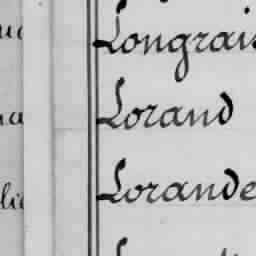 Longrais
Lorand
Lorande